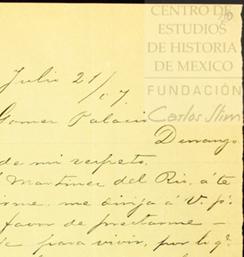 CENTRO DE
ESTUDIOS
DE HISTORIA
DE MEXICO
FUNDACIÓN
Carlos Slim
Julio 21/07.
Gomez Palacio
Durango
de mi respeto.
Martinez del Rio, á te
me dirija á V. pi
favor de prestarme
para vivir, por lo q.